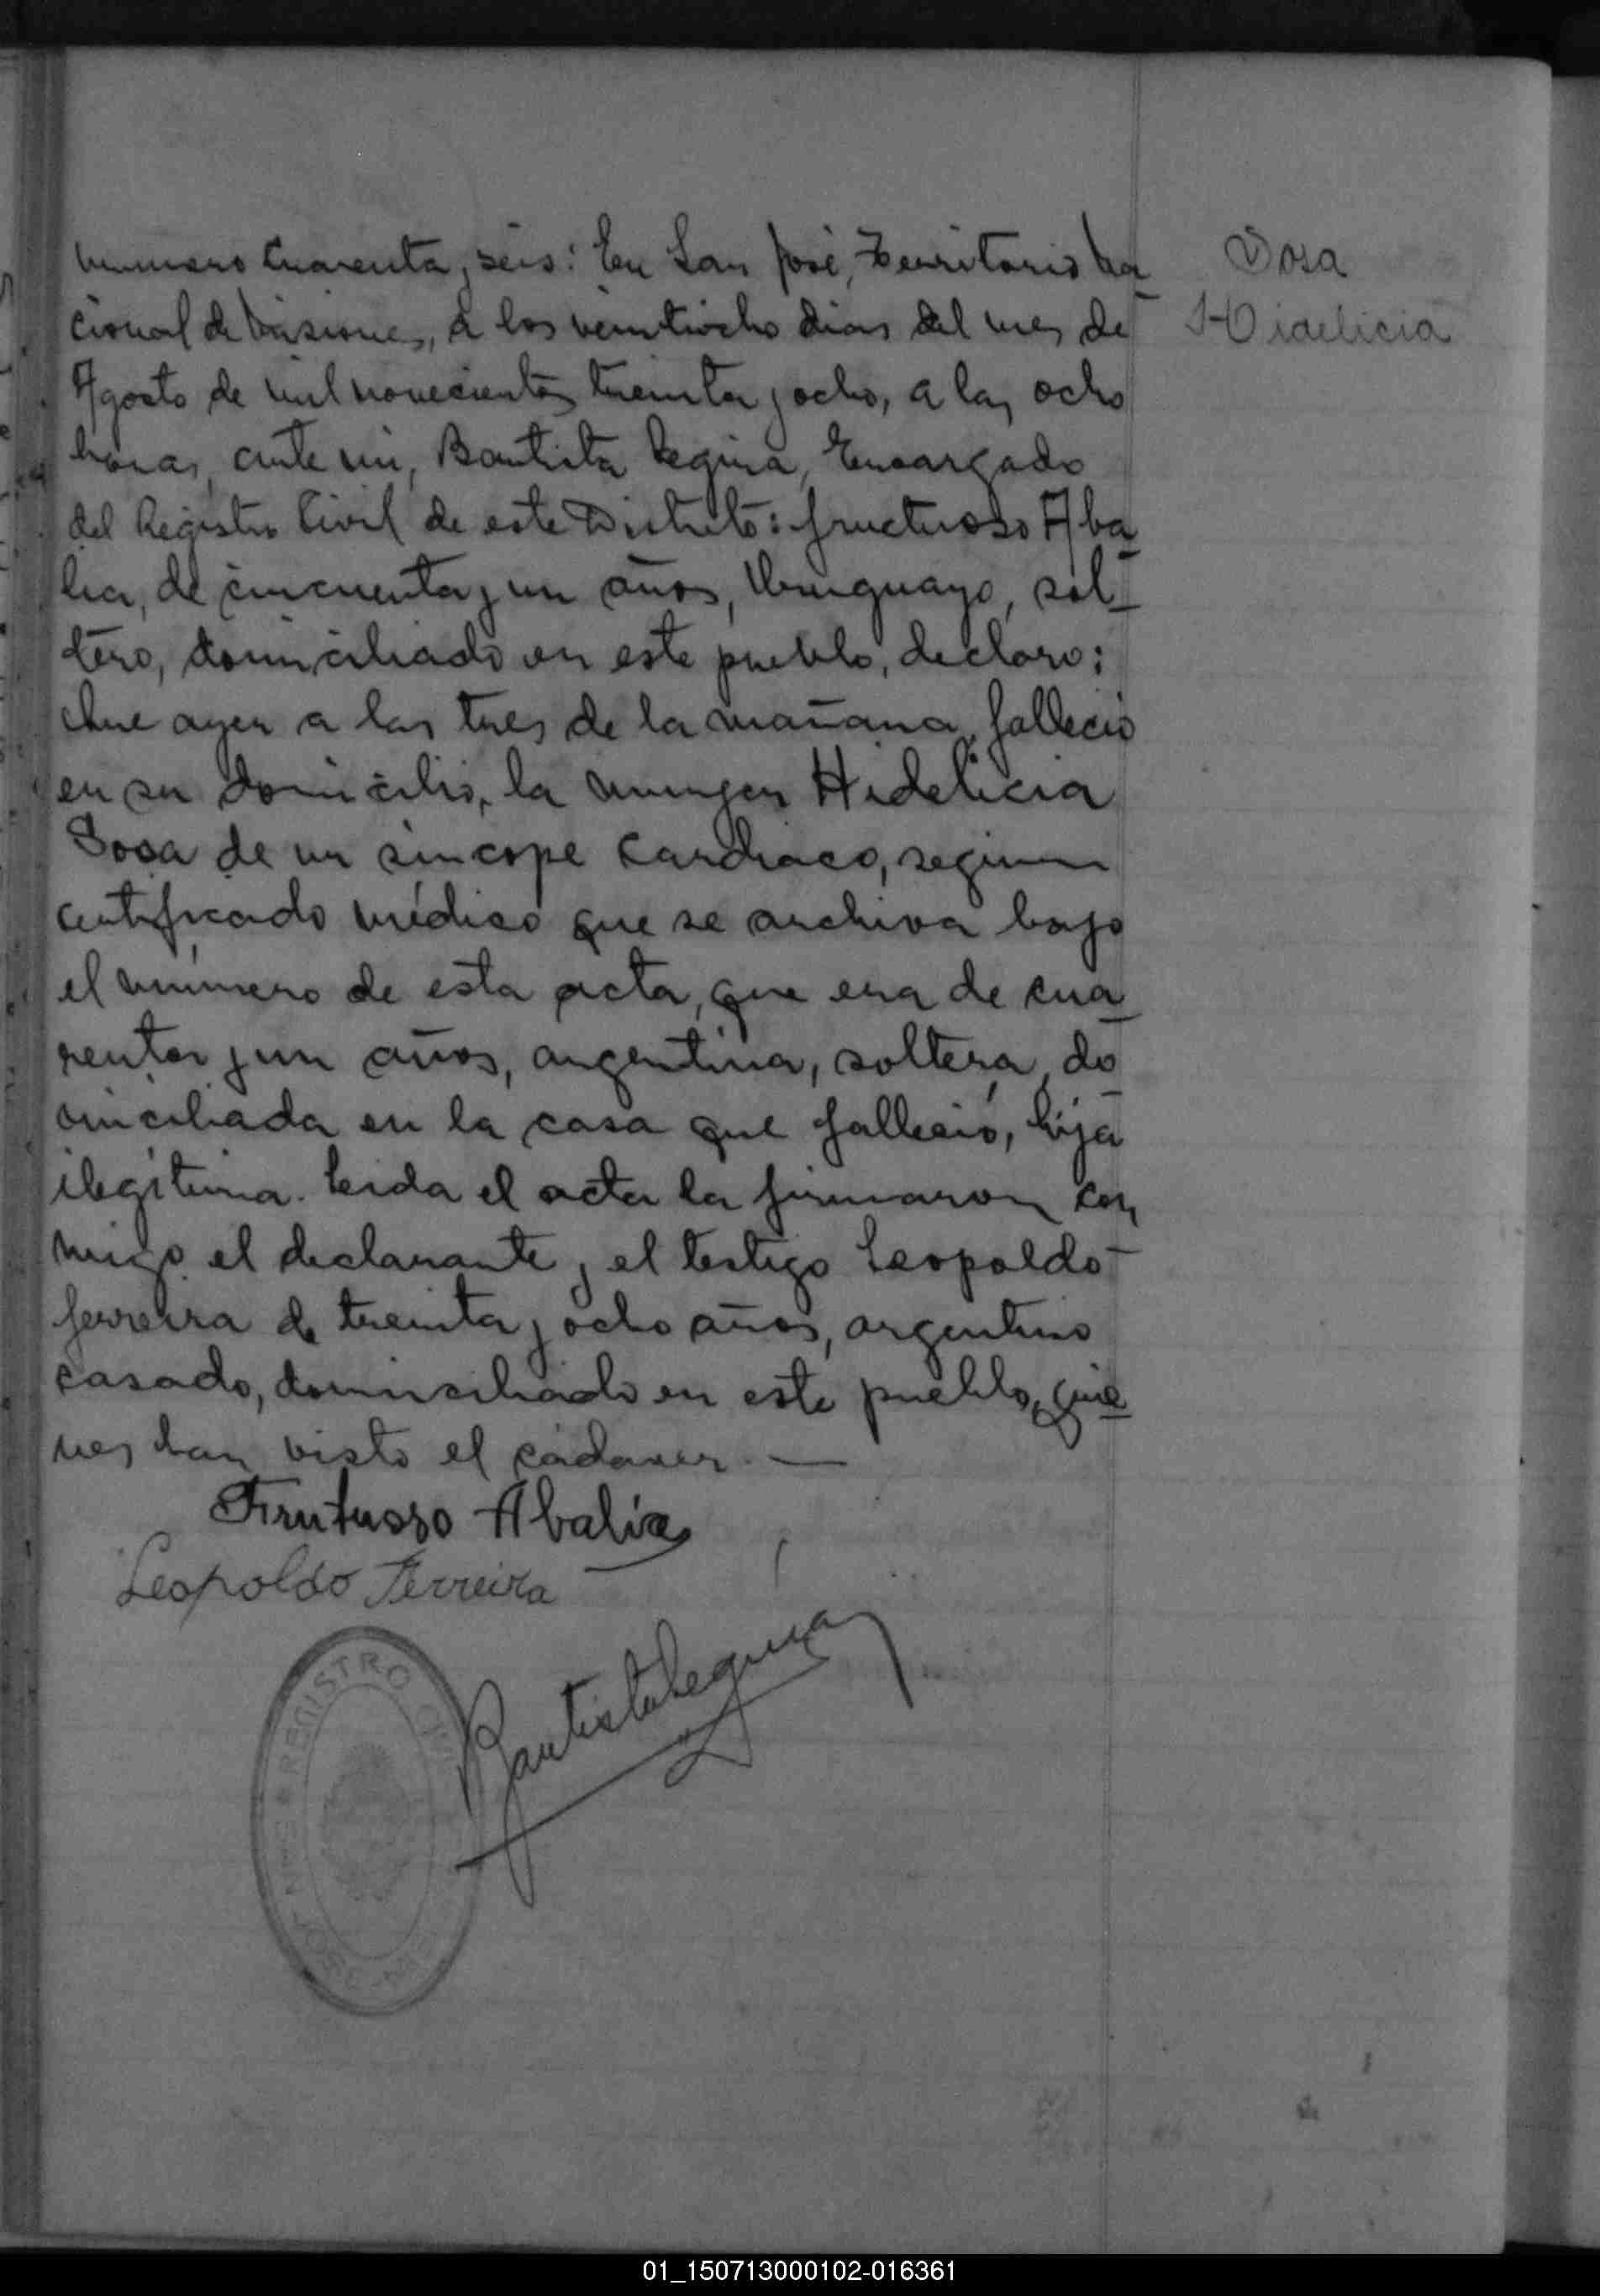 Sosa
Hidelicia
numero cuarenta y seis: En San José, Territorio Na-
cional de Misiones, a los veintiocho dias del mes de
Agosto de mil novecientos treinta y ocho, a las ocho
horas, ante mi, Bautista Leguia, Encargado
del Registro Civil de este Distrito: Fructuoso Aba-
lia, de cincuenta y un años, Uruguayo, sol-
tero, domiciliado en este pueblo, declaro:
Que ayer a las tres de la mañana, falleció
en su domicilio, la mujer Hidelicia
Sosa de un sincope cardiaco, segun
certificado médico que se archiva bajo
el número de esta acta, que era de cua-
renta y un años, argentina, soltera, do-
miciliada en la casa que falleció, hija
ilegítima. Leida el acta la firmaron con
migo el declarante y el testigo Leopoldo
Ferreira de treinta y ocho años, argentino
casado, domiciliado en este pueblo, quie-
nes han visto el cádaver.—
Frutuoso Abalia
Leopoldo Ferreira
Bautista Leguia
REGISTRO CIVIL
SAN JOSÉ
01_150713000102-016361